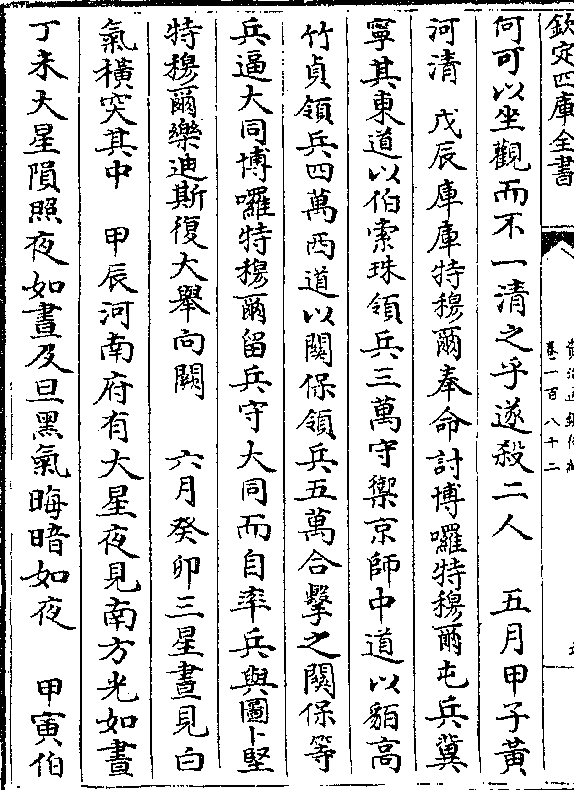 欽定四庫全書
卷一百八十二
何可以坐觀而不一清之乎遂殺二人　五月甲子黃
河清　戊辰庫庫特穆爾奉命討博囉特穆爾屯兵冀
寧其東道以伯索珠領兵三萬守禦京師中道以貊高
竹貞領兵四萬西道以關保領兵五萬合擊之關保等
兵逼大同博囉特穆爾留兵守大同而自率兵與圖卜堅
特穆爾樂迪斯復大舉向闕　六月癸卯三星晝見白
氣橫突其中　甲辰河南府有大星夜見南方光如晝
丁未大星隕照夜如晝及旦黑氣晦暗如夜　甲寅伯